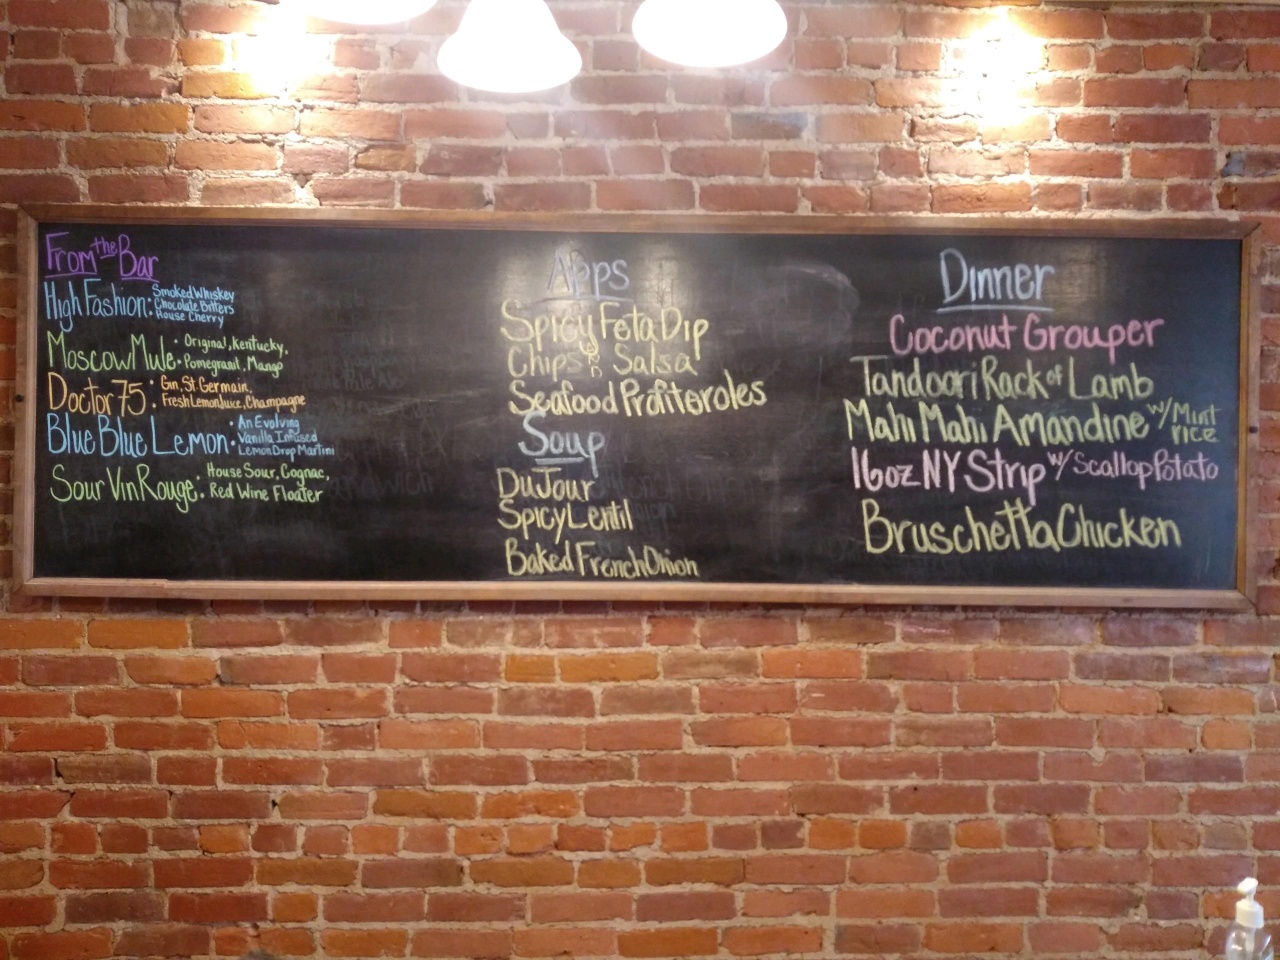 From the Bar
High Fashion: Smoked Whiskey
Chocolate Bitters
House Cherry
Moscow Mule· Original, Kentucky,
·Pomegranit, Mango
Doctor 75: Gin, St. Germain,
Fresh Lemon Juice, Champagne
Blue Blue Lemon: An Evolving
Vanilla Infused
Lemon Drop Martini
Sour Vin Rouge: House Sour, Cognac,
Red Wine Floater
Apps
Spicy Feta Dip
Chips n Salsa
Seafood Profiteroles
Soup
DuJour
Spicy Lentil
Baked French Onion
Dinner
Coconut Grouper
Tandoori Rack of Lamb
Mahi Mahi Amandine w/ Mint
rice
16oz NY Strip w/ Scallop Potato
Bruschetta Chicken